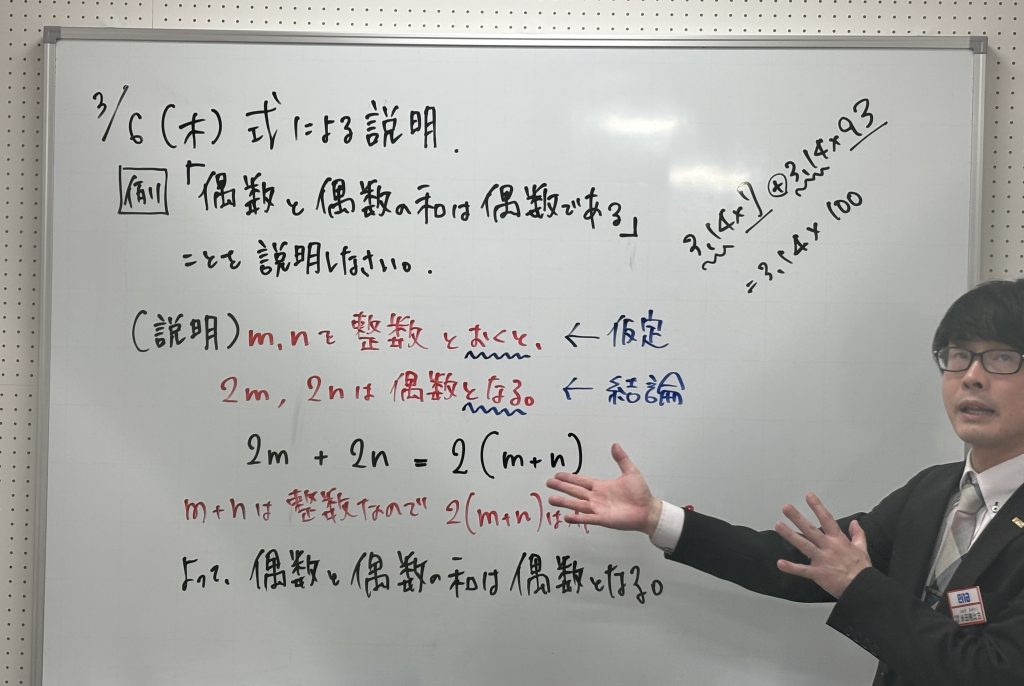 3/6(木) 式による説明.
例 「偶数と偶数の和は偶数である」
ことを説明しなさい。
(説明) m, nを整数とおくと、 ← 仮定
2m, 2nは偶数となる。 ← 結論
2m + 2n = 2(m+n)
m+nは整数なので 2(m+n)は
よって、偶数と偶数の和は偶数となる。
3.14×7 + 3.14×93
= 3.14 × 100
ena